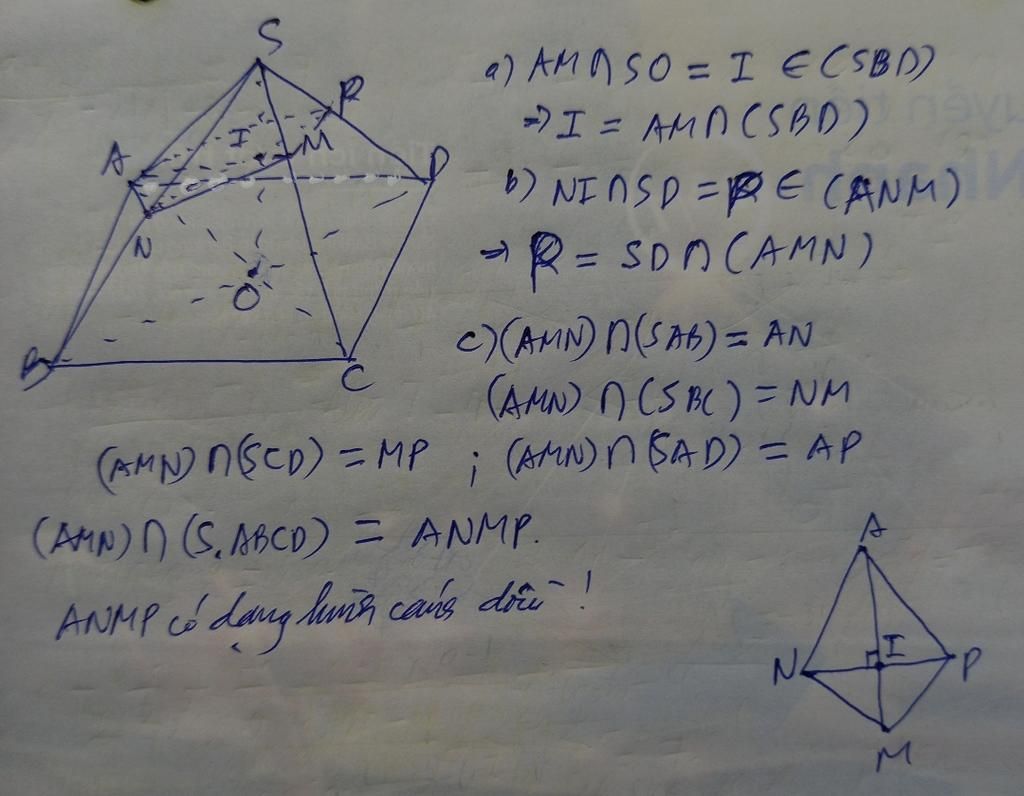 S
R
I
M
A
D
N
O
B
C
a) AM∩SO = I ∈ (SBD)
⇒ I = AM∩(SBD)
b) NI∩SD = P ∈ (ANM)
→ P = SD∩(AMN)
c) (AMN)∩(SAB) = AN
(AMN) ∩(SBC) = NM
(AMN)∩(SCD) = MP ; (AMN)∩(SAD) = AP
(AMN)∩(S.ABCD) = ANMP.
ANMP có dạng hình cánh diều !
A
N
I
P
M